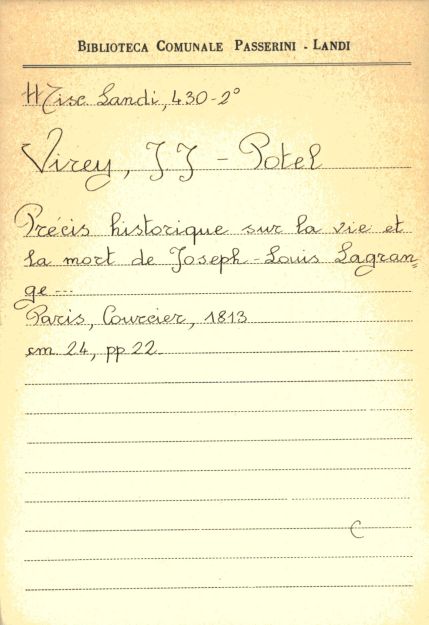 BIBLIOTECA COMUNALE PASSERINI - LANDI
Misc. Landi, 430-2°
Virey, J J - Potel
Précis historique sur la vie et
la mort de Joseph-Louis Lagran=
ge ---
Paris, Courcier, 1813
cm 24, pp 22.
C